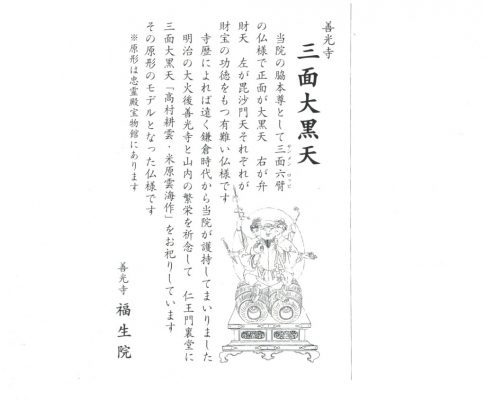 善光寺
三面大黒天
当院の脇本尊として三面六臂
サンメン ロッピ
の仏様で正面が大黒天 右が弁
財天 左が毘沙門天それぞれが
財宝の功徳をもつ有難い仏様です
寺歴によれば遠く鎌倉時代から当院が護持してまいりました
明治の大火後善光寺と山内の繁栄を祈念して 仁王門裏堂に
三面大黒天「高村耕雲・米原雲海作」をお祀りしています
その原形のモデルとなった仏様です
※原形は忠霊殿宝物館にあります
善光寺 福生院